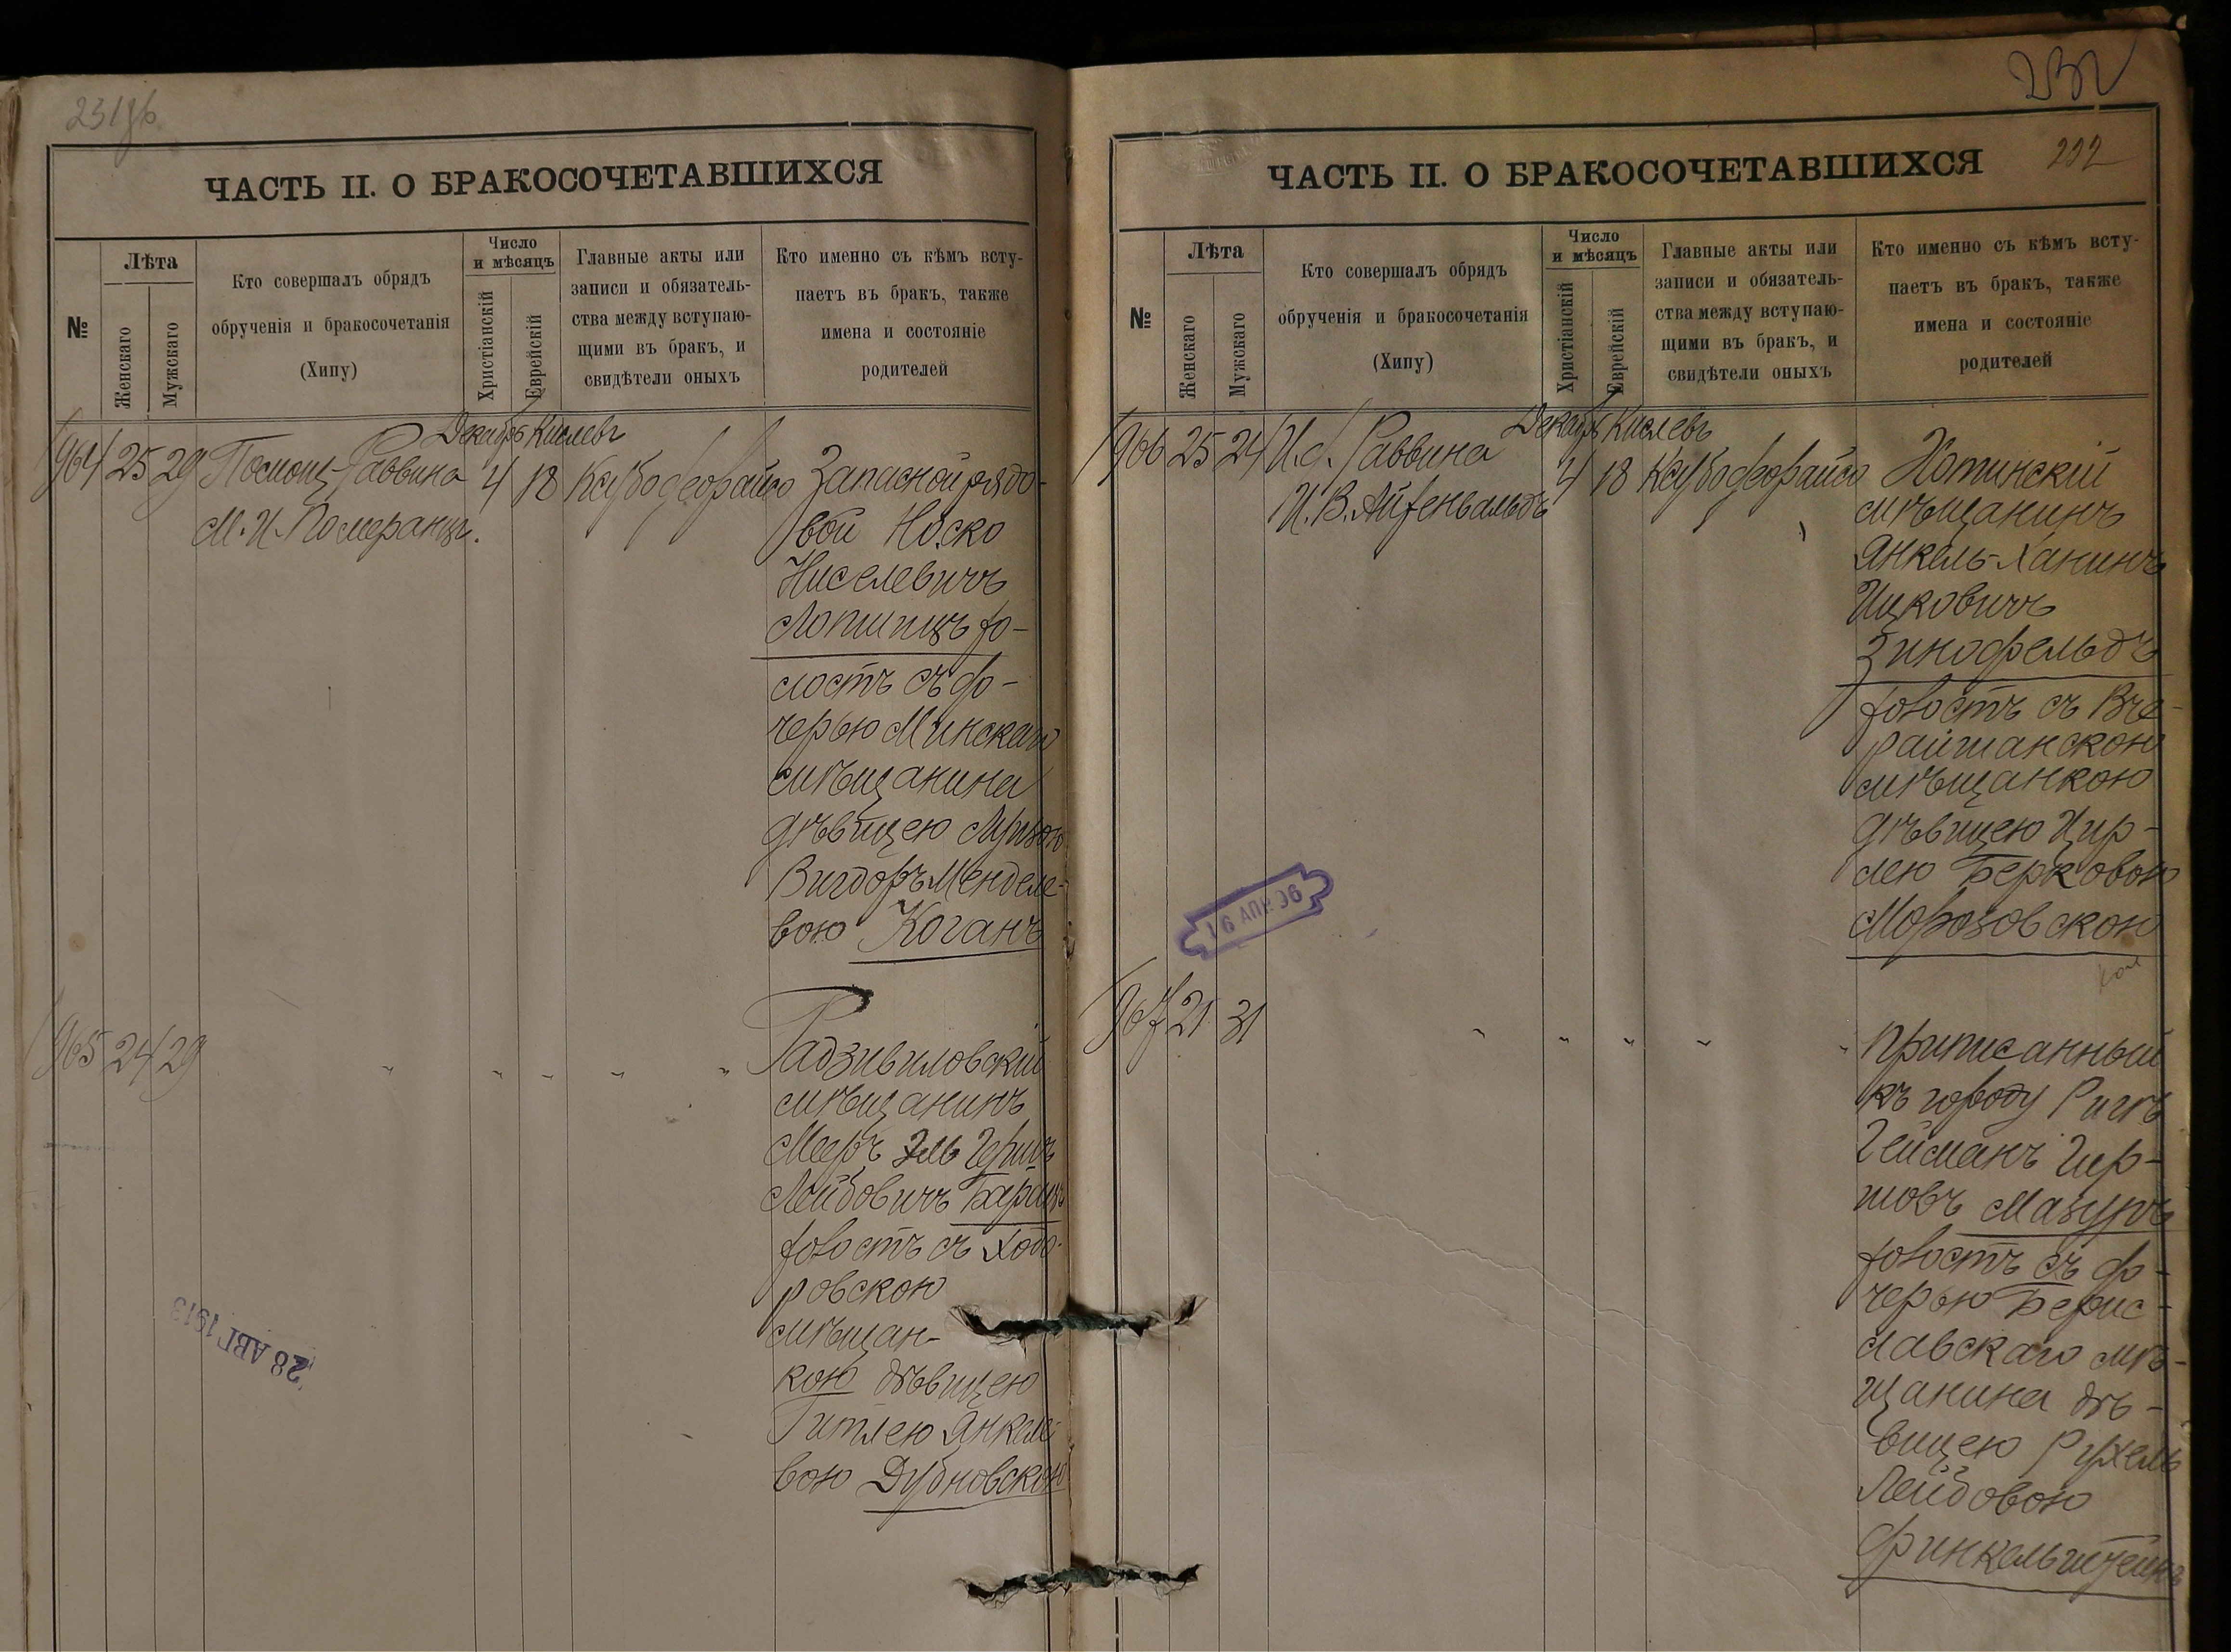 231 об
ЧАСТЬ II. О БРАКОСОЧЕТАВШИХСЯ
№
Лѣта
Женскаго
Мужскаго
Кто совершалъ обрядъ
обрученія и бракосочетанія
(Хипу)
Число
и мѣсяцъ
Христіанскій
Еврейскій
Главные акты или
записи и обязатель-
ства между вступаю-
щими въ бракъ, и
свидѣтели оныхъ
Кто именно съ кѣмъ всту-
паетъ въ бракъ, также
имена и состояніе
родителей
Декабрь Кислевъ
964 25 29 Помощ. Раввина 4 18
М. И. Померанцъ.
Запасной рядо-
вой Іоско
Ниселевичъ
холостъ съ до-
черью Минскаго
мѣщанина
дѣвицею
Вигдоръ-Менделе-
вою Коганъ
965 24 29 " " " " "
Радзивиловскій
мѣщанинъ
Мееръ Гершъ
Лейбовичъ
холостъ съ Ходо-
ровскою
мѣщан-
кою дѣвицею
Гитлею Янкеле-
вою Дубновскою
28 АВГ 1913
232
232
ЧАСТЬ II. О БРАКОСОЧЕТАВШИХСЯ
№
Лѣта
Женскаго
Мужскаго
Кто совершалъ обрядъ
обрученія и бракосочетанія
(Хипу)
Число
и мѣсяцъ
Христіанскій
Еврейскій
Главные акты или
записи и обязатель-
ства между вступаю-
щими въ бракъ, и
свидѣтели оныхъ
Кто именно съ кѣмъ всту-
паетъ въ бракъ, также
имена и состояніе
родителей
Декабрь Кислевъ
966 25 24 И. д. Раввина 4 18
И. В. Айзенвальдъ
Хотинскій
мѣщанинъ
Янкель-Ханинъ
Ицковичъ
Зинофельдъ
холостъ съ Вче-
райшанскою
мѣщанкою
дѣвицею Цир-
лею Берковою
Морозовскою
16 АПР 96
967 21 31 " " " " "
Приписанный
къ городу Ригѣ
Гейманъ Гир-
шовъ Мазуръ
холостъ съ до-
черью Берис-
лавскаго мѣ-
щанина дѣ-
вицею Рухель
Лейбовою
Финкельштейнъ